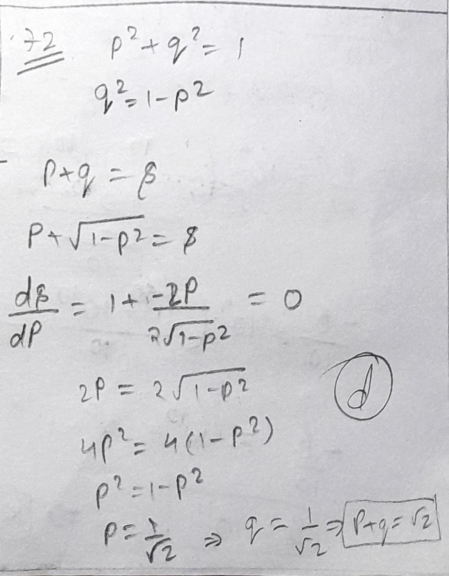 72 p²+q²=1
q²=1-p²
p+q=s
p+√(1-p²)=s
ds/dp = 1+ -2p/2√(1-p²) = 0
2p = 2√(1-p²)
d
4p² = 4(1-p²)
p²=1-p²
p=1/√2 ⇒ q=1/√2 ⇒ p+q=√2